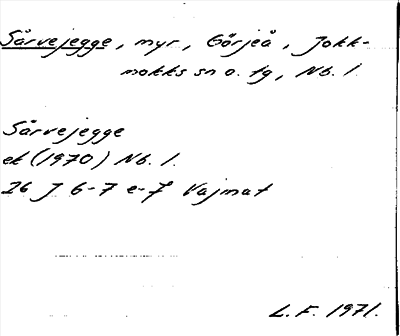 Sårvejegge, myr, Görjeå, Jokk-
mokks sn o. tg, Nb. l.
Sårvejegge
ek (1970) Nb. l.
26 J 6-7 e-f Vajmat
L.F. 1971.